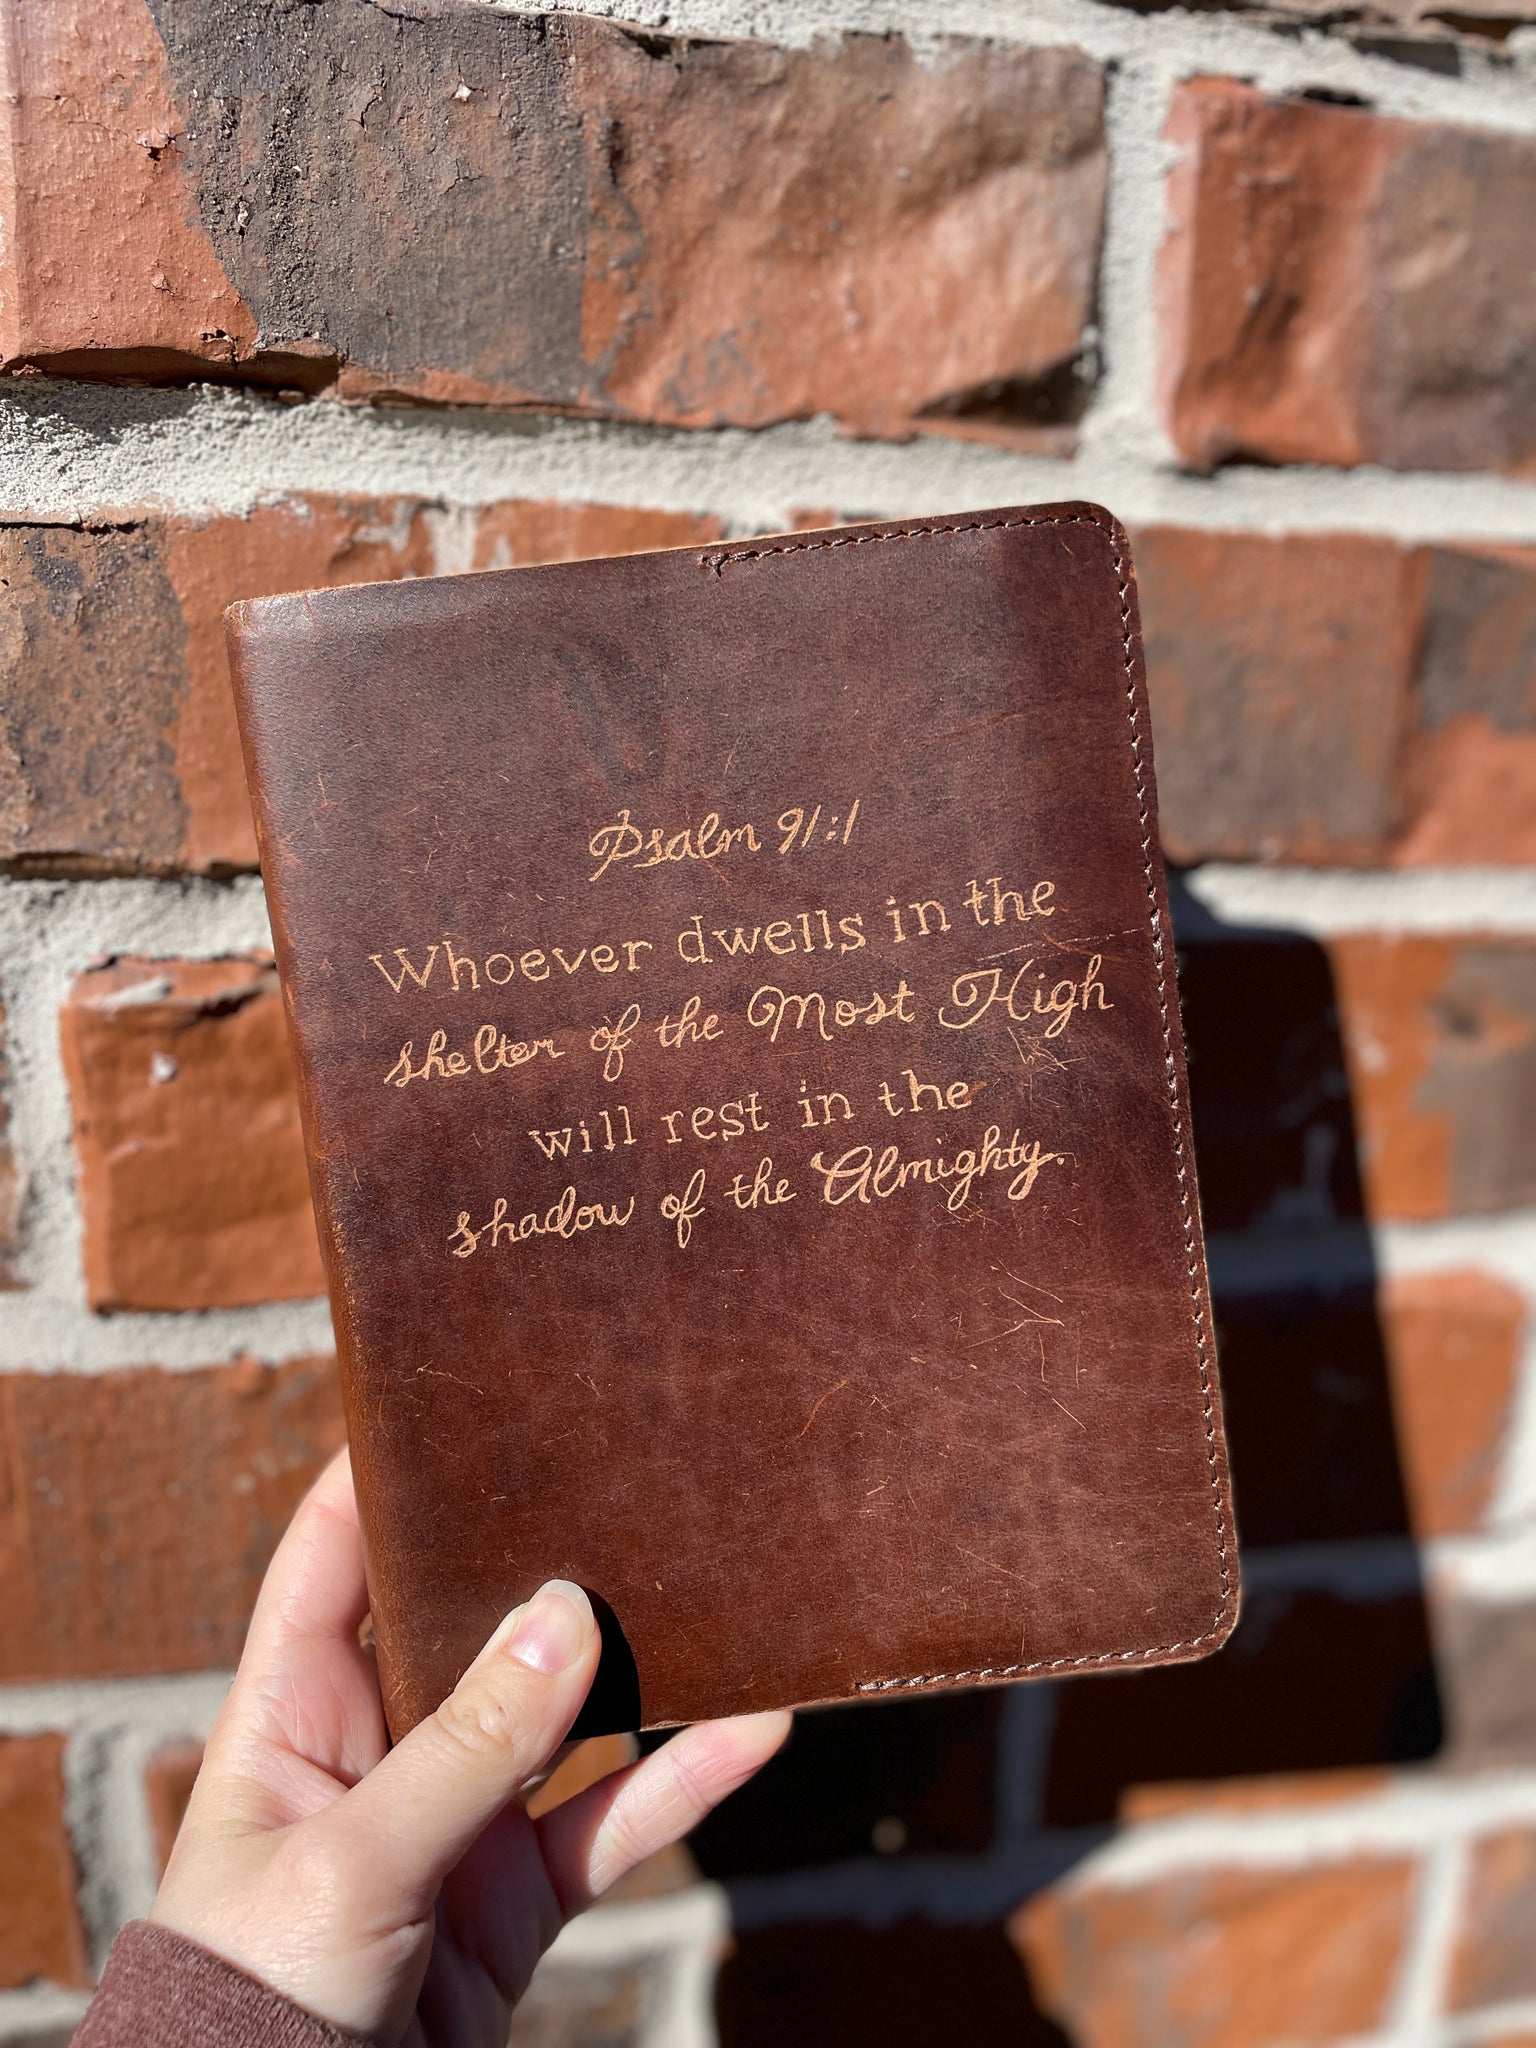 Psalm 91:1
Whoever dwells in the
shelter of the Most High
will rest in the
shadow of the Almighty.